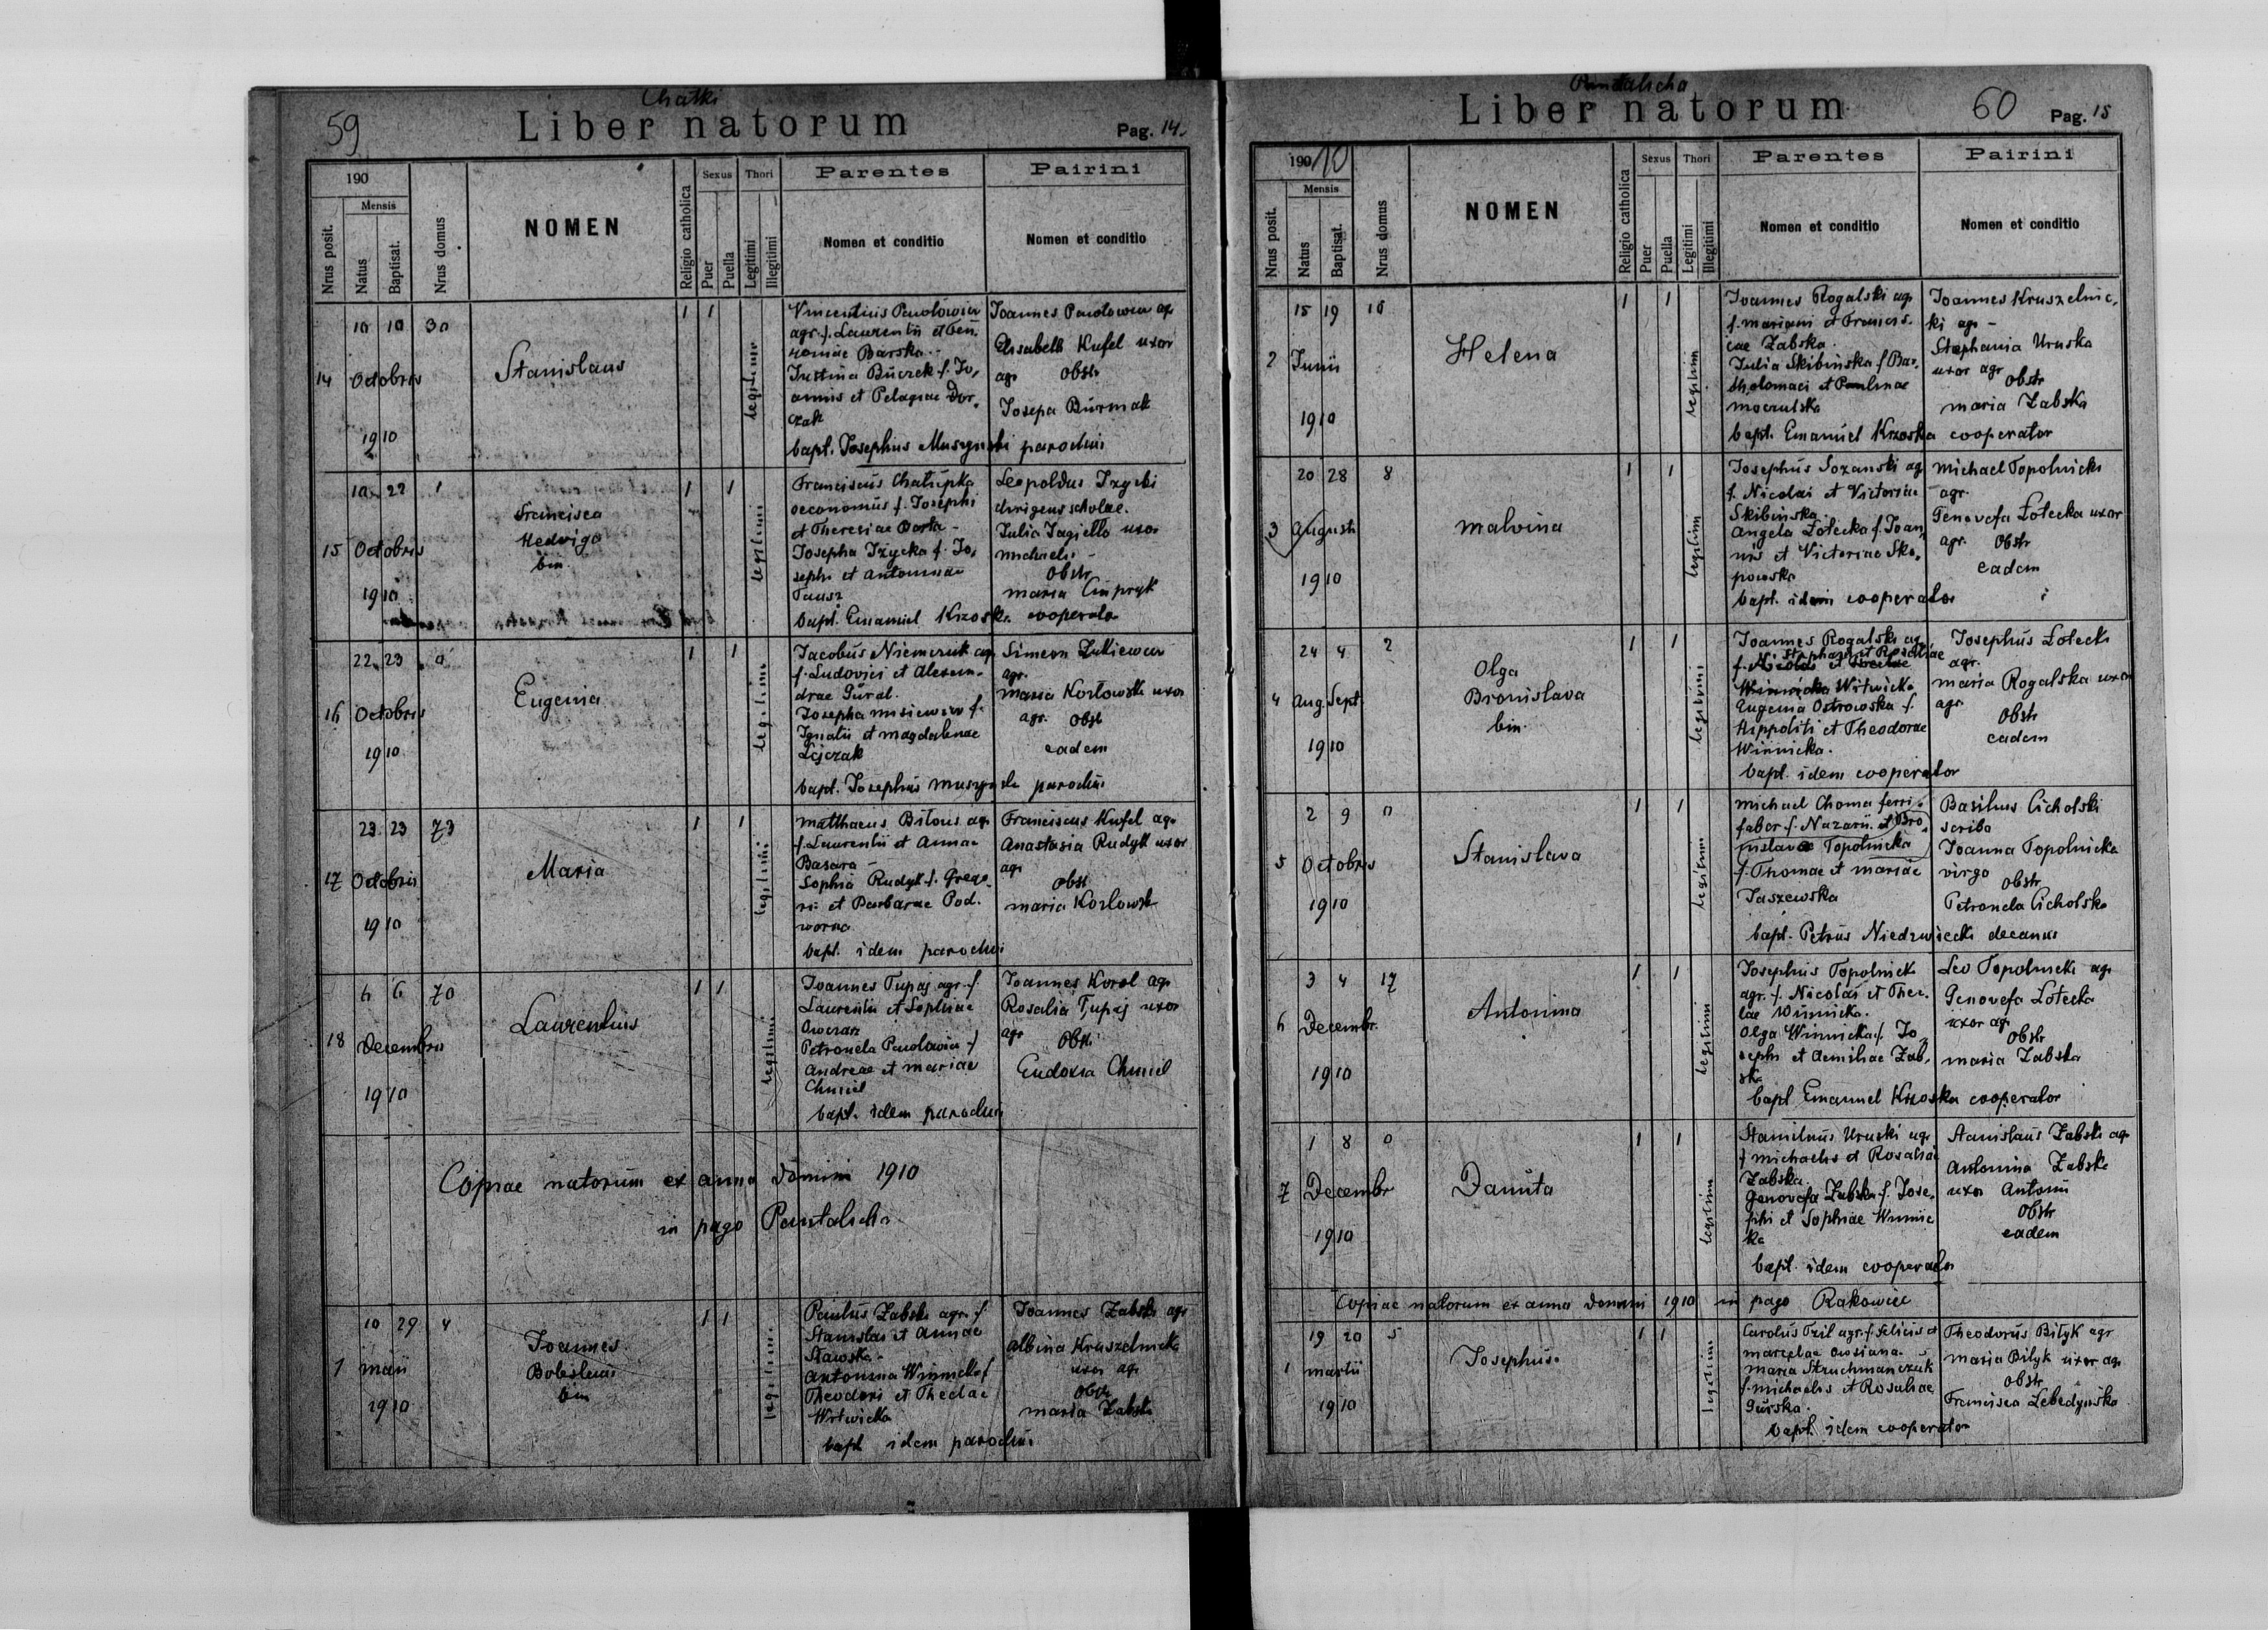 Chatki
59
Liber natorum
Pag. 14.
190
Mensis
Nrus posit.
Natus
Baptisat.
Nrus domus
NOMEN
Religio catholica
Sexus
Puer
Puella
Thori
Legitimi
Illegitimi
Parentes
Nomen et conditio
Pairini
Nomen et conditio
14
10 10 30
Octobris
1910
Stanislaus
1 1
legitimi
Vincentius Pawłowicz
agr. f. Laurentii et
Barska
Justina Buczek f. Jo,
annis et Pelagiae Dor,
czak
Joannes Pawłowicz agr
Elisabeth Kufel uxor
agr Obstr
Josepa Burmak
bapt. Josephus Muszyński parochus
15
10 22 1
Octobris
1910
Francisca
Hedviga
bin
1 1
legitimi
Franciscus Chałupka
oeconomus f. Josephi
et Theresiae Barta
Josepha Iżycka f. Jo,
sephi et Antoninae
Tausz
Leopoldus Iżycki
dirigens scholae.
Julia Jagiełło uxor
Michaeli
Obstr
Maria Ciupryk
bapt. Emanuel Krzoska cooperator
16
22 23
Octobris
1910
Eugenia
1 1
legitimi
Jacobus Niemczuk agr
f. Ludovici et Alexan-
drae Gural.
Josepha Misiewicz f.
Ignatii et Magdalenae
Lejczak
Simeon Żukiewicz
agr.
Maria Kozłowska uxor
agr. Obstr
eadem
bapt. Josephus Muszyński parochus
17
23 23 73
Octobris
1910
Maria
1 1
legitimi
Matthaeus Biłous agr
f. Laurentii et Annae
Basara
Sophia Rudyk f. Grego,
rii et Barbarae Pod.
worna
Franciscus Kufel agr
Anastasia Rudyk uxor
agr
Obstr
Maria Kozłowska
bapt. idem parochus
18
6 6 70
Decembris
1910
Laurentius
1 1
legitimi
Joannes Tupaj agr. f.
Laurentii et Sophiae
Petronela Pawłowicz f
Andreae et Mariae
Chmiel
Joannes Korol agr
Rosalia Tupaj uxor
agr Obstr
Eudoxia Chmiel
bapt. idem parochus
Copiae natorum ex anno Domini 1910
in pago Pantalicha
1
10 29 4
Maii
1910
Joannes
Boleslaus
bin
1 1
legitimi
Paulus Żabski agr. f
Stanislai et Annae
Sławska
Antonina Winnicka f
Theodori et Theclae
Witwicka
Joannes Żabski agr
Albina Kruszelnicka
uxor agr
Obstr
Maria Żabska
bapt idem parochus
Pantalicha
Liber natorum
60
Pag. 15
1910
Mensis
Nrus posit.
Natus
Baptisat.
Nrus domus
NOMEN
Religio catholica
Sexus
Puer
Puella
Thori
Legitimi
Illegitimi
Parentes
Nomen et conditio
Pairini
Nomen et conditio
2
15 19 16
Junii
1910
Helena
1 1
legitim
Joannes Rogalski agr
f. Mariani et Francis.
cae Żabska.
Julia Skibińska f Bar,
tholomaei et Paulinae
Moczulska
Joannes Kruszelnic,
ki agr
Stephania Uruska
uxor agr
Obstr
Maria Żabska
bapt. Emanuel Krzoska cooperator
3
20 28 8
Augusti
1910
Malvina
1 1
legitim
Josephus Sozanski agr
f. Nicolai et Victoriae
Skibińska.
Angela Łotecka f. Joan,
nis et Victoriae Sko,
powska
Michael Topolnicki
agr.
Genovefa Łotecka uxor
agr. Obstr
eadem
bapt. idem cooperator
4
24 4 2
Aug. Sept.
1910
Olga
Bronislava
bin
1 1
legitimi
Joannes Rogalski agr
Stephani et Rosaliae
Witwicka
Eugenia Ostrowska f.
Hippoliti et Theodorae
Winnicka.
Josephus Łotecki
agr.
Maria Rogalska uxor
agr
Obstr
eadem
bapt. idem cooperator
5
2 9 0
Octobris
1910
Stanislava
1 1
legitimi
Michael Choma ferri,
faber f. Nazarii et Bro,
nislava Topolnicka
f. Thomae et Mariae
Jaszewska
Basilius Cicholski
scriba
Joanna Topolnicka
virgo
Obstr
Petronela Cicholska
bapt. Petrus Niedzwiecki decanus
6
3 4 17
Decembr.
1910
Antonina
1 1
legitimi
Josephus Topolnicki
agr. f. Nicolai et Thec.
lae Winnicka.
Olga Winnicka f. Jo,
sephi et Aemiliae Żab,
ska
Leo Topolnicki agr
Genovefa Łotecka
uxor agr
Obstr
Maria Żabska
bapt Emanuel Krzoska cooperator
7
1 8 0
Decembr
1910
Danuta
1 1
legitimi
Stanislaus Uruski agr
f Michaelis et Rosaliae
Żabska.
Genovefa Żabska f. Jose,
phi et Sophiae Winnic
ka
Stanislaus Żabski agr
Antonina Żabska
uxor Antonii
Obstr
eadem
bapt. idem cooperator
Copiae natorum ex anno Domini 1910 in pago Rakowiec
1
19 20 5
Martii
1910
Josephus
1 1
legitimi
Carolus Tzil agr. f. Felicis et
Marcelae Owsiana
Maria Struchmanczuk
f. Michaelis et Rosaliae
Gurska.
Theodorus Bityk agr
Maria Bityk uxor agr
Obstr
Francisca Lebedyńska
bapt. idem cooperator